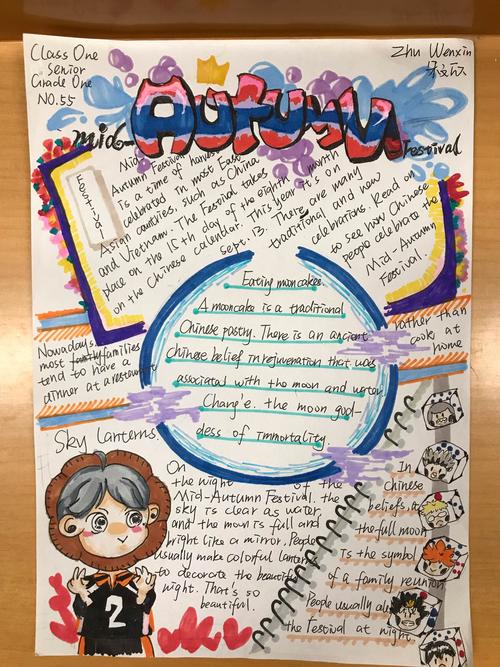 Class One
Senior
Grade One
NO.55
Zhu Wenxin
mid-
AUTUMN
festival
Festival
Mid-
Autumn Festival
is a time of harvest
celebrated in most East
Asian countries, such as China
and Vietnam. The Festival takes
place on the 15th day of the eighth month
on the Chinese calendar. This year it's on
Sept. 13. There are many
traditional and new
celebrations. Read on
to see how Chinese
people celebrate the
Mid-Autumn
Festival.
Eating mooncakes.
A mooncake is a traditional
Chinese pastry. There is an ancient
Chinese belief in rejuvenation that was
associated with the moon and water
Chang'e. the moon god-
dess of Immortality.
Nowadays
most families
tend to have a
dinner at a restaurant
rather than
cook at
home
Sky Lanterns.
On
the night of the
Mid-Autumn Festival. the
sky is clear as water
and the moon is full and
bright like a mirror. People
usually make colorful lanterns
to decorate the beautiful
night. That's so
beautiful.
In
Chinese
beliefs,
the full moon
is the symbol
of a family reunion
People usually
the Festival at night
2